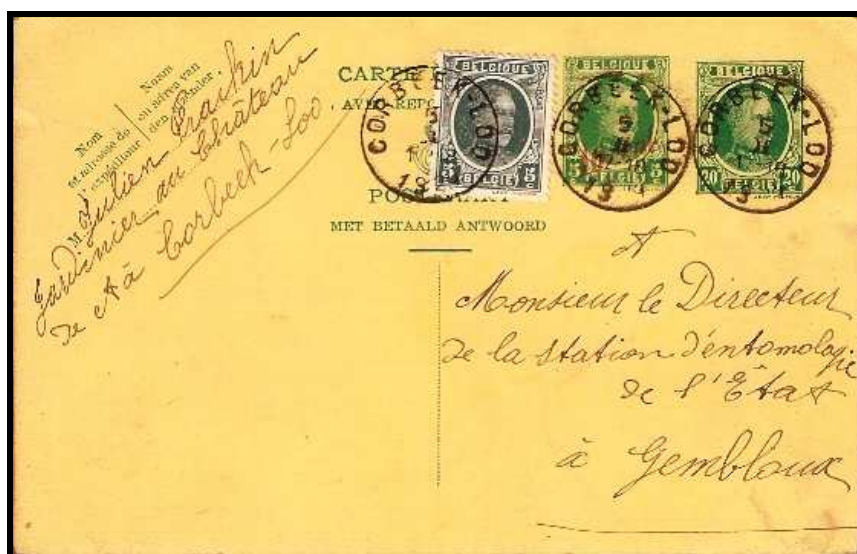 Nom
et adresse de
l'expéditeur
Naam
en adres van
den afzender.
M Julien Praskin
Jardinier au Château
de et à Corbeek-Loo
CARTE
AVEC RÉPO
POSTKAART
MET BETAALD ANTWOORD
BELGIQUE
5c 5c
BELGIË
CORBEEK-LOO
BELGIQUE
CORBEEK-LOO
BELGIQUE
20 20
CORBEEK-LOO
A
Monsieur le Directeur
de la station d'entomologie
de l'État
à Gembloux